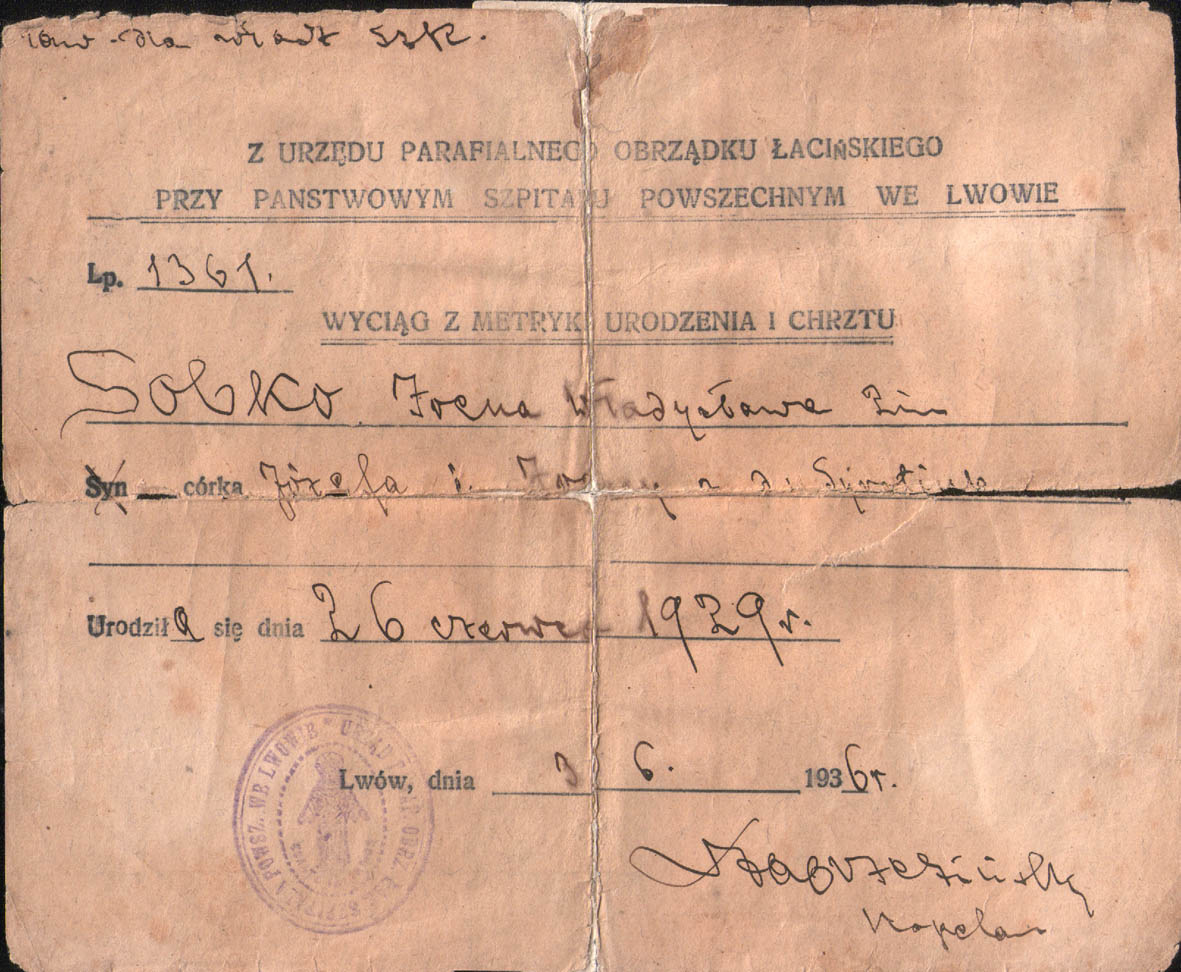 dla władz szk.
Z URZĘDU PARAFIALNEGO OBRZĄDKU ŁACIŃSKIEGO
PRZY PANSTWOWYM SZPITALU POWSZECHNYM WE LWOWIE
Lp. 1361.
WYCIĄG Z METRYKI URODZENIA I CHRZTU
Sobko Irena Władysława
Syn córka Józefa i Ireny z d.
Urodziła się dnia 26 czerwca 1929 r.
Lwów, dnia 3 6. 1936 r.
POWSZ. WE LWOWIE * URZĄD PAR. OBRZ. ŁAC. SZPITALA
Kapelan